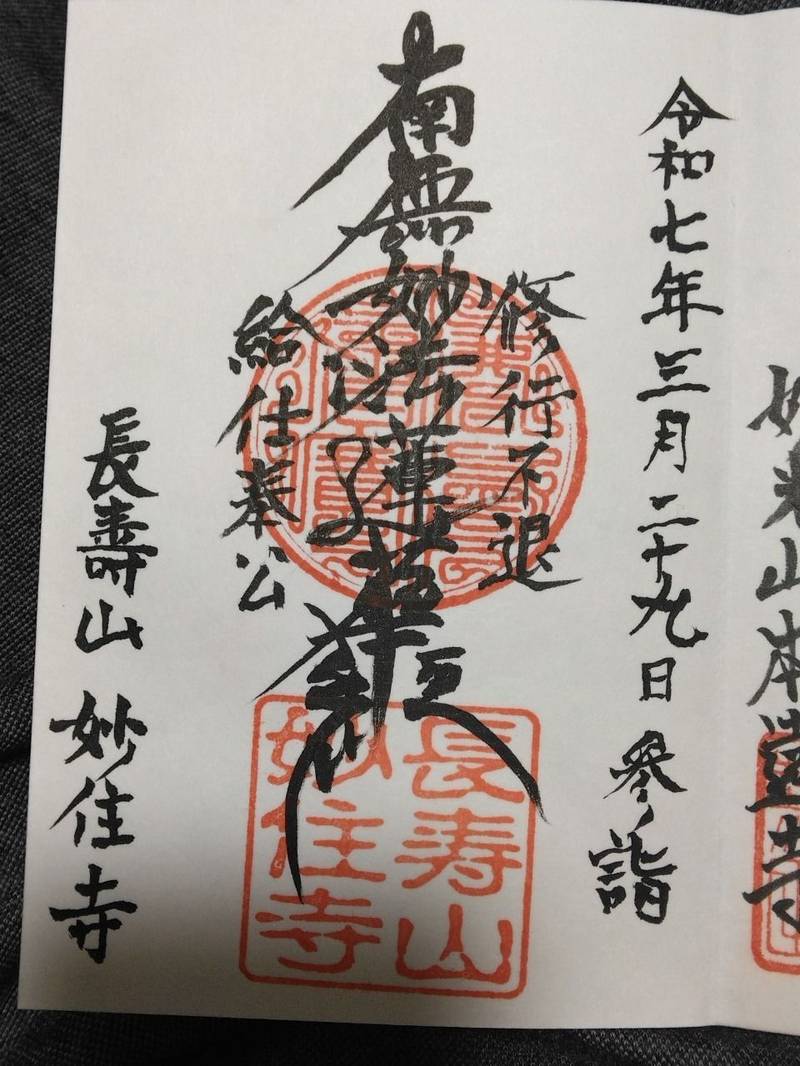 妙来山本遠寺
令和七年三月二十九日 参詣
修行不退
南無妙法蓮華経
給仕奉公
長寿山
妙住寺
長壽山 妙住寺